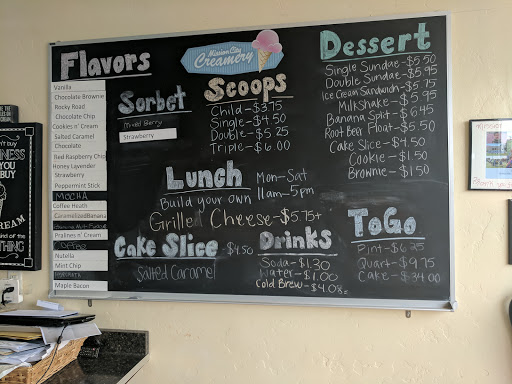 Flavors
Vanilla
Chocolate Brownie
Rocky Road
Chocolate Chip
Cookies n' Cream
Salted Caramel
Chocolate
Red Raspberry Chip
Honey Lavender
Strawberry
Peppermint Stick
MOCHA
Coffee Heath
Caramelized Banana
Pralines n' Cream
COFFEE
Nutella
Mint Chip
Maple Bacon
Mission City
Creamery
Sorbet
Mixed Berry
Strawberry
Scoops
Child-$3.75
Single-$4.50
Double-$5.25
Triple-$6.00
Dessert
Single Sundae-$5.50
Double Sundae-$5.95
Ice Cream Sandwich-$5.75
Milkshake-$5.95
Banana Split-$6.45
Root Beer Float-$5.50
Cake Slice-$4.50
Cookie-$1.50
Brownie-$1.50
Lunch
Mon-Sat
11am-5pm
Build your own
Grilled Cheese-$5.75+
Cake Slice-$4.50
Salted Caramel
Drinks
Soda-$1.30
Water-$1.00
Cold Brew-$4.08
ToGo
Pint-$6.25
Quart-$9.75
Cake-$34.00